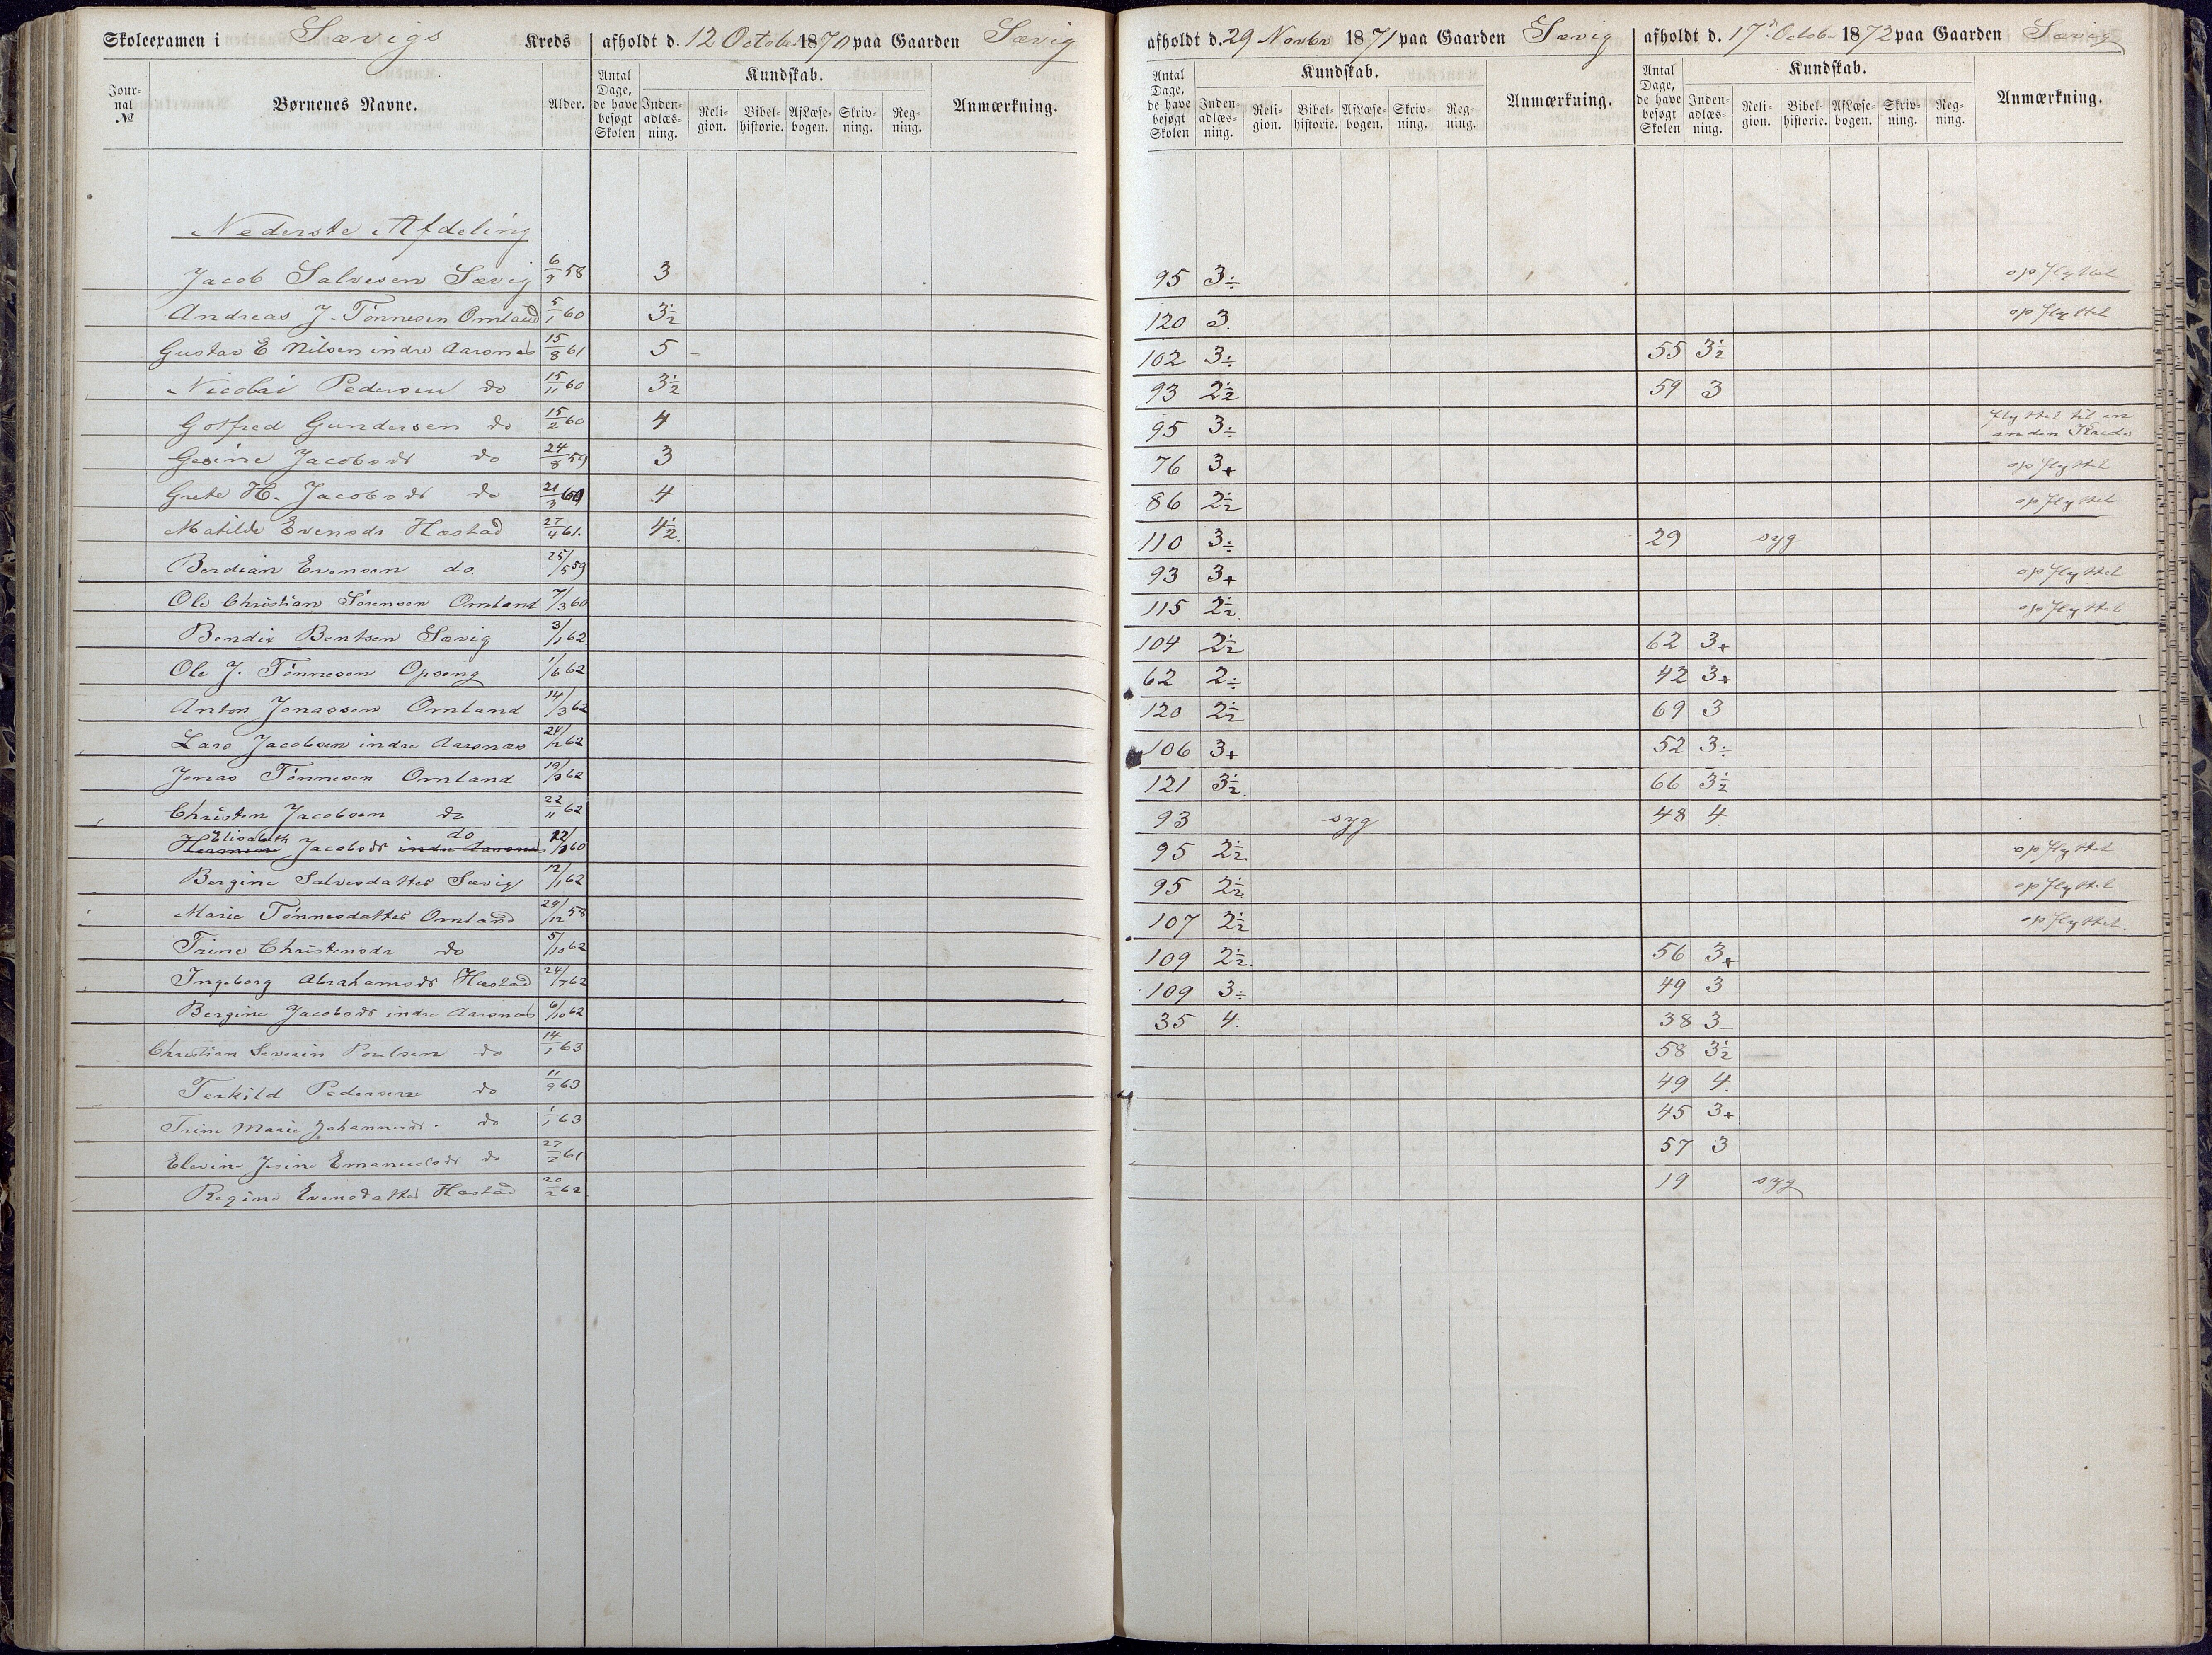 Skoleexamen i Sævigs Kreds afholdt d. 12 October 1870 paa Gaarden Sævig
afholdt d. 29 Novbr 1871 paa Gaarden Sævig afholdt d. 17d October 1872 paa Gaarden Sævig
Jour-nal № Børnenes Navne. Alder. Antal Dage, de have besøgt Skolen Kundskab. Inden-adlæs-ning. Reli-gion. Bibel-historie. AfLæse-bogen. Skriv-ning. Reg-ning. Anmærkning.
Antal Dage, de have besøgt Skolen Kundskab. Inden-adlæs-ning. Reli-gion. Bibel-historie. AfLæse-bogen. Skriv-ning. Reg-ning. Anmærkning.
Antal Dage, de have besøgt Skolen Kundskab. Inden-adlæs-ning. Reli-gion. Bibel-historie. AfLæse-bogen. Skriv-ning. Reg-ning. Anmærkning.
Nederste Afdeling
Jacob Salvesen Sævig 6/9 58 3 95 3÷ opflyttet
Andreas J. Tönnesen Omland 5/1 60 3½ 120 3. opflyttet
Gustav E Nilsen indre Aarsnes 15/8 61 5 - 102 3÷ 55 3½
Nicolai Pedersen do 15/11 60 3½ 93 2½ 59 3
Gotfred Gundersen do 15/2 60 4 95 3÷ flyttet til en anden Kreds
Gesine Jacobsdr do 24/8 59 3 76 3+ opflyttet
Grete H. Jacobsdr do 21/3 60 4 86 2½ opflyttet
Matilde Evensdr Hæstad 27/4 61. 4½. 110 3÷ 29 syg
Berdian Evensen do. 25/5 59 93 3+ opflyttet
Ole Christian Sörensen Omland 7/3 60 115 2½. opflyttet
Bendix Bentsen Sævig 3/1 62 104 2½ 62 3+
Ole J. Tönnesen Opseng 1/6 62 62 2÷ 42 3+
Anton Jonassen Omland 14/3 62 120 2½ 69 3
Lars Jacobsen indre Aarsnes 24/2 62 106 3+ 52 3÷
Jonas Tönnesen Omland 19/9 62 121 3½. 66 3½
Christen Jacobsen do 22/11 62 93 syg 48 4
Elisabeth do
Jacobsdr indre Aarsnes 60 95 2½ opflyttet
Bergine Salvesdatter Sævig 12/1 62 95 2½ opflyttet
Marie Tönnesdatter Omland 29/12 58 107 2½ opflyttet.
Trine Christensdr do 5/10 62 109 2½. 56 3+
Ingeborg Abrahamsdr Hæstad 24/7 62 109 3÷ 49 3
Bergine Jacobsdr indre Aarsnes 6/10 62 35 4. 38 3-
Christian Severin Poulsen do 14/1 63 58 3½
Terkild Pedersen do 11/9 63 49 4.
Trine Marie Johannesdr. do 1/1 63 45 3+
Elevine Jesine Emanuelsdr do 27/7 61 57 3
Regine Evensdatter Hæstad 20/2 62. 19 syg